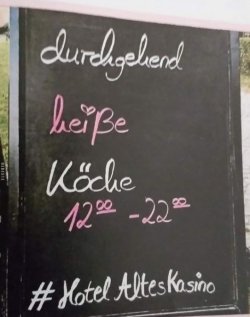 durchgehend
heiße
Köche
12⁰⁰ - 22⁰⁰
# Hotel Altes Kasino